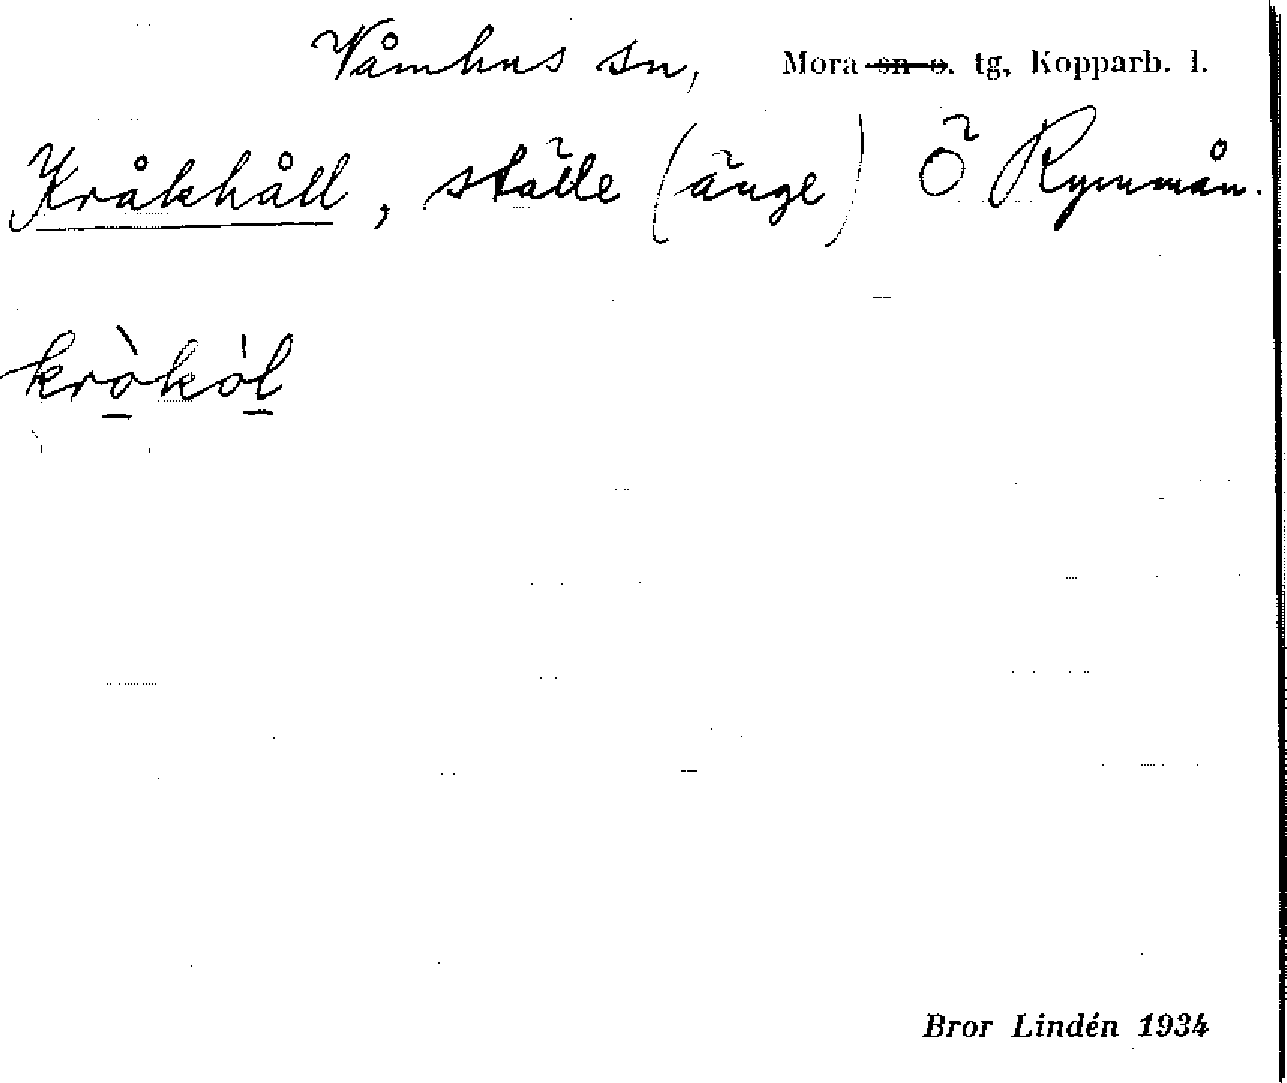 Våmhus sn, Mora sn o. tg, Kopparb. l.
Kråkhåll, ställe (änge) Ö Rymmån.
kròkòl
Bror Lindén 1934